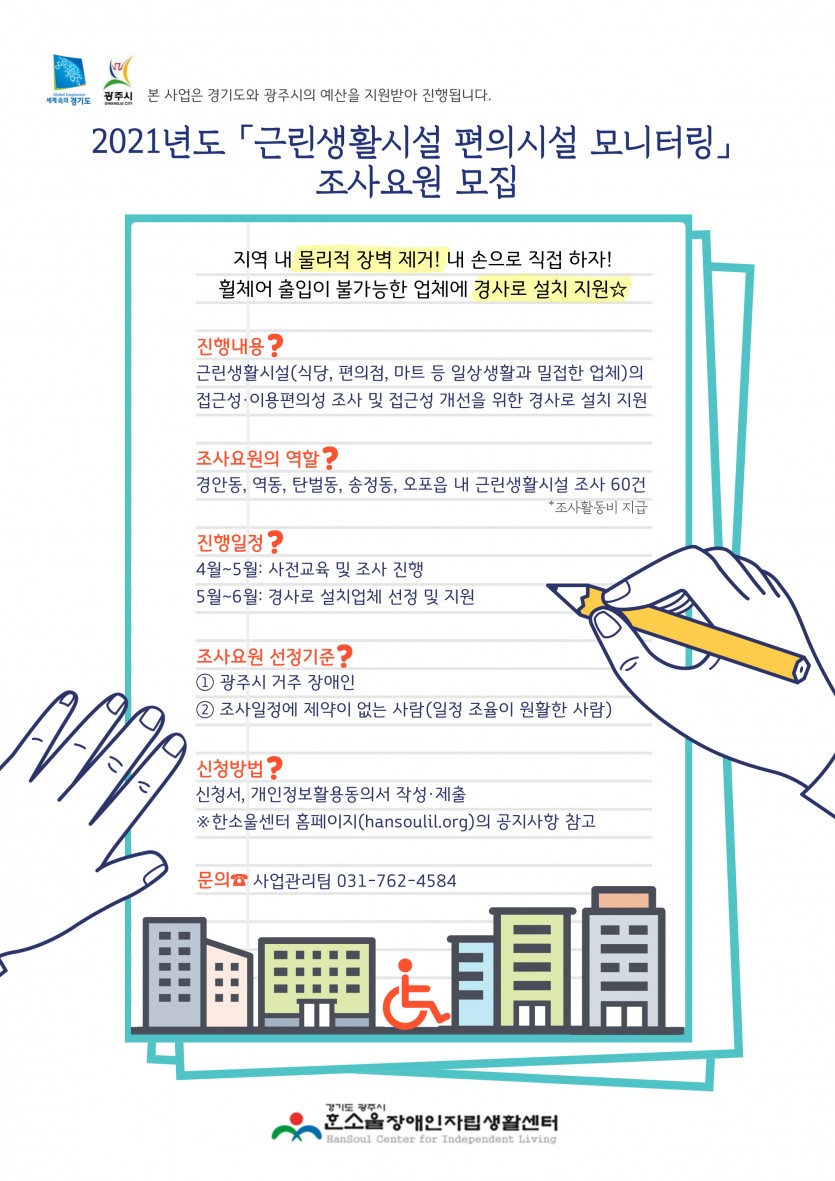 Global Inspiration
세계 속의 경기도
광주시
GWANGJU CITY
본 사업은 경기도와 광주시의 예산을 지원받아 진행됩니다.
2021년도 「근린생활시설 편의시설 모니터링」
조사요원 모집
지역 내 물리적 장벽 제거! 내 손으로 직접 하자!
휠체어 출입이 불가능한 업체에 경사로 설치 지원☆
진행내용?
근린생활시설(식당, 편의점, 마트 등 일상생활과 밀접한 업체)의
접근성·이용편의성 조사 및 접근성 개선을 위한 경사로 설치 지원
조사요원의 역할?
경안동, 역동, 탄벌동, 송정동, 오포읍 내 근린생활시설 조사 60건
*조사활동비 지급
진행일정?
4월~5월: 사전교육 및 조사 진행
5월~6월: 경사로 설치업체 선정 및 지원
조사요원 선정기준?
① 광주시 거주 장애인
② 조사일정에 제약이 없는 사람(일정 조율이 원활한 사람)
신청방법?
신청서, 개인정보활용동의서 작성·제출
※한소울센터 홈페이지(hansoulil.org)의 공지사항 참고
문의☎ 사업관리팀 031-762-4584
경기도 광주시
한소울장애인자립생활센터
HanSoul Center for Independent Living